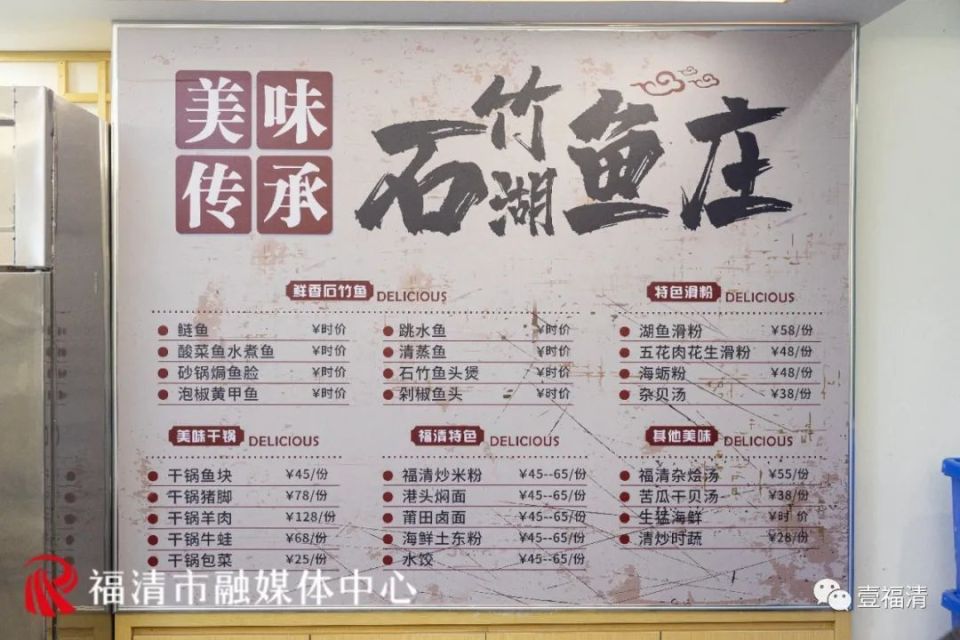 美味
传承
石竹湖鱼庄
鲜香石竹鱼 DELICIOUS
鲢鱼 ¥时价
酸菜鱼水煮鱼 ¥时价
砂锅焗鱼脸 ¥时价
泡椒黄甲鱼 ¥时价
跳水鱼 ¥时价
清蒸鱼 ¥时价
石竹鱼头煲 ¥时价
剁椒鱼头 ¥时价
特色滑粉 DELICIOUS
湖鱼滑粉 ¥58/份
五花肉花生滑粉 ¥48/份
海蛎粉 ¥48/份
杂贝汤 ¥38/份
美味干锅 DELICIOUS
干锅鱼块 ¥45/份
干锅猪脚 ¥78/份
干锅羊肉 ¥128/份
干锅牛蛙 ¥68/份
干锅包菜 ¥25/份
福清特色 DELICIOUS
福清炒米粉 ¥45--65/份
港头焖面 ¥45--65/份
莆田卤面 ¥45--65/份
海鲜土东粉 ¥45--65/份
水饺 ¥45--65/份
其他美味 DELICIOUS
福清杂烩汤 ¥55/份
苦瓜干贝汤 ¥38/份
生猛海鲜 ¥时价
清炒时蔬 ¥28/份
福清市融媒体中心
壹福清